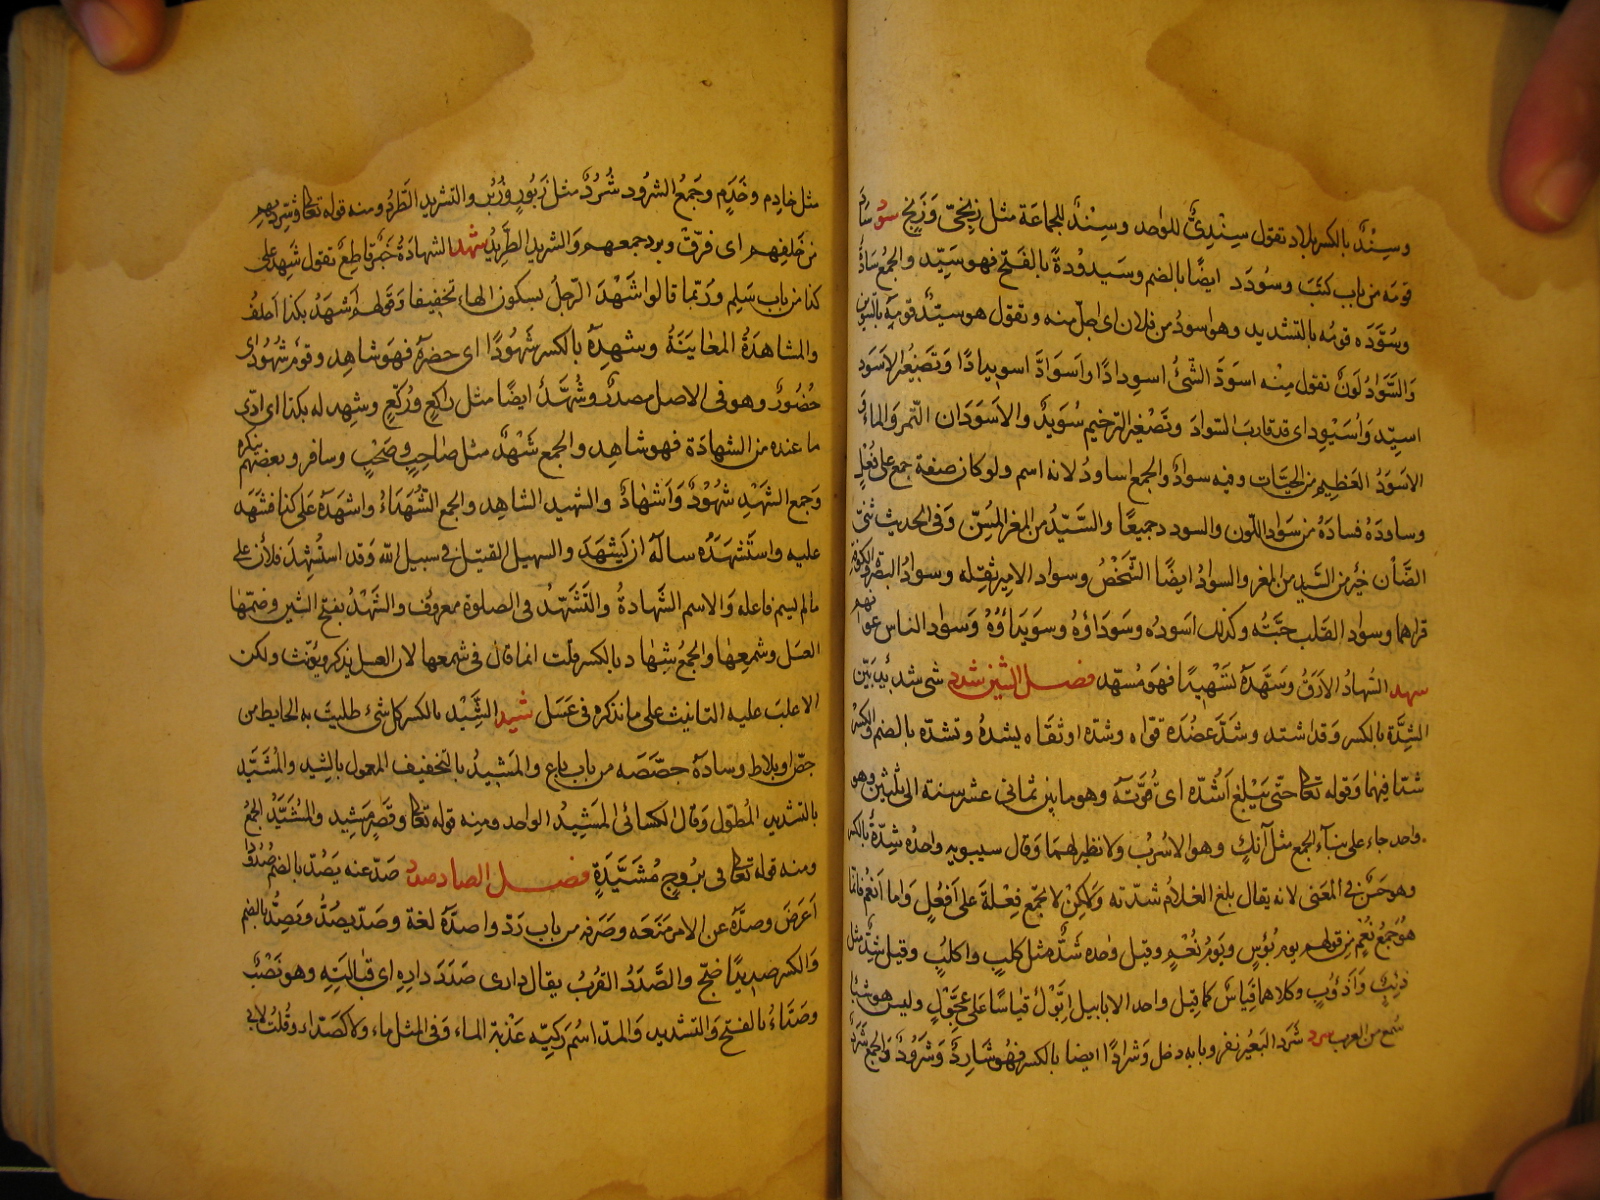 وسِنْدٌ بالكسر بلاد تقول سِنْدِىٌّ للواحد وسِنْدٌ للجماعة مثل زِنجِىّ وَزِنج سود سَادَ
قومَه من باب كتَبَ وسُودَدَ ايضًا بالضم وسَيدودةً بالفتح فهو سَيِّد والجمع سَادَةٌ
وسُوَّدَه قومُه بالتشديد وهو اسودُ من فلان اى اجلّ منه وتقول هو سيّد قومِه بالتنوين
وَالسَّوَادُ لَونٌ تقول مِنْه اسوَدَّ الشَّىُٔ اسودادًا واسوَادَّ اسويدادًا وَتَصغِيُر الاَسوَد
اسيّد وَاُسَيْوِد اى قد قارب السّواد وتَصْغير الترخيم سُوَيدٌ والاَسوَدَان التّمر وَالماء وَ
الاسوَدُ العَظِيم من الحيَّات وفيه سوادٌ والجمع اساودُ لانه اسم ولو كان صفة جمع على فُعْلٍ
وساودَهُ فسادَهُ من سَوَاد اللّون والسودد جميعًا والسَّيِّدُ من المغز المُسِنّ وَفى الحديث ثَنىّ
الضَّأن خيْر من السَّيد من المغر والسوادُ ايضًا الشّخْصُ وسواد الامير ثقله وسوادُ البصرة والكوفة
قراهما وسواد القَلب حبَّتُه وكذلك اسودُه وسَودَاؤه وسوَيدَاؤُهُ وَسوَاد الناس عوامهم
سهد السُّهادُ الارَقُ وسَهَّدَهُ تَسْهِيدًا فهوَ مُسهّد فصل الشّين شدد شى شديد بَيّن
الشِّدَّة بالكسر وَقد اشتد وشَدَّ عضُدَه قوّاه وشدّه اوثقَاه يشدهُ وتشدّه بالضم والكسر
شدّا فيهما وَقوله تعالى حتى يَبْلغ اَشُدّه اى قُوَّتَهُ وهو ما بين ثمانى عشر سنة الى ثلثين وهو
واحد جاء على بنآء الجمع مثل آنكٍ وهو الاُسرُبُ ولا نظير لهمَا وقال سيبويه واحدُه شِدّةٌ بالكسر
وهو حَسَن فى المعَنى لانه يقال بلغ الغلامُ شدّته وَلكِنْ لا تجمع فِعْلةَ على اَفعُلٍ وَاما اَنعُم فانما
هُوَ جَمعُ نُعْم من قولهم يوم بُؤسٍ وَيَومُ نُعْمٍ وقيل واحده شَدٌّ مثل كلبٍ واكلبٍ وقيل شِدٌّ مثل
ذِئبٍ وَاَذْؤبٍ وكلاهما قياسٌ كما قِيل واحد الابابيل اِبّوْلٌ قيَاسًا عَلى عِجّوْلٍ وليس هو شيأ
سُمع من العرب شرد شَرَدَ البَعير نفر وبابه دخل وشَرادًا ايضا بالكسر فهُو شَارِدٌ وشَرُودٌ والجمع شَرَدٌ
مثل خادِم وخَدَمٍ وجَمعُ الشرُود شُرُدٌ مثل زَبُورٍ وَزُبُرٍ والتشريد الطَّردُ ومنه قوله تعالى فشرد بهم
من خَلفِهم اى فرّقْ وبرد جمعهم والشريد الطَّريدُ شهد الشهادَةُ خبَر قاطِعٌ تقول شَهِد على
كذا من باب سَلِم وَرُبّما قالوا شَهْدَ الرّجلُ بسكون الهاءِ تخفيفا وَقولهم اَشهَدُ بكذا اَحلِفُ
والمشاهدَةُ المعَايَنَةُ وشهِدَهُ بالكسر شُهودًا اى حضره فهوَ شاهِد وقوم شُهُودٌ اى
حُضُورٌ وهو فى الاصل مصدرٌ وشُهَّدٌ ايضًا مثل راكِعٍ ورُكّعٍ وشهد له بكذا اى ادّى
ما عنده من الشهادَة فهو شاهِد والجمع شَهْدٌ مثل صَاحِبٍ وصَحْبٍ وسافر وبعضهم ينكره
وَجمع الشّهْدِ شُهُوْدٌ وَاَشهَادٌ والشهيد الشاهد والجمع الشُّهَدَاءُ واشهَدَهُ على كذا فشَهَد
عليه واستَشهَدَهُ سالَهُ ان يَشهَدَ والشهيد القتيل فى سبيل الله وَقد استُشهِدَ فلان على
ما لم يسم فاعله وَالاسم الشَّهادةُ والتَّشَهّد فى الصلوة معروف والشَّهْدُ بفتح الشين وضمّها
العسَل وشمعِها والجمعُ شِهاد بالكسر قلت انما قال فى شمعها لان العسل يذكر ويُؤنّث ولكن
الاغلب عليه التانيث على ما نذكره فى عَسَل شيد الشِّيْد بالكسر كل شىء طليتَ به الحايط من
جصّ او بلاط وسادَهُ جصّصَه من باب باع والمَشيدُ بالتخفيف المعمول بالشيد والمُشَيَّد
بالتشديد المُطوّل وَقال الكسائى المَشِيدُ الواحد ومنه قوله تعالى وقَصرٍ مَشِيد والمُشَيَّدُ الجمعُ
ومنه قوله تعالى فى بُرُوجٍ مُشَيَّدَةٍ فصل الصاد صدد صَدّ عنه يَصُدّ بالضم صُدُودًا
اَعرَضَ وصدَّهُ عن الامر مَنَعَه وصَرفه من باب رَدّ واصدَّهُ لغة وصَدّ يصُدُّ ويَصِدُّ بالضم
وَالكسر صدِيدًا ضجّ والصَّدَدُ القُربُ يقال دارى صَدَدَ دارِهِ اى قبالتَه وهو نَصْبٌ
وصَدَّاءُ بالفتح وَالتشديد والمدّ اسمُ رَكيّه عَذْبة الماء وَفى المثل ماء وَلا كَصَدّاء وقُلتُ لابى